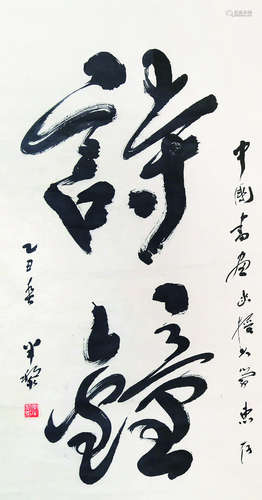 詩鐘
中國書畫函授大學惠存
乙丑春